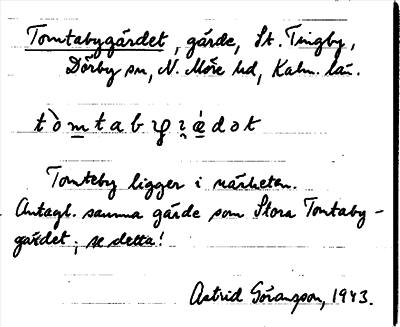 Tomtabygärdet, gärde, St. Tingby,
Dörby sn, N. Möre hd, Kalm. län.
Tomteby ligger i närheten.
Antagl. samma gärde som Stora Tomtaby-
gärdet; se detta!
Astrid Göransson, 1943.